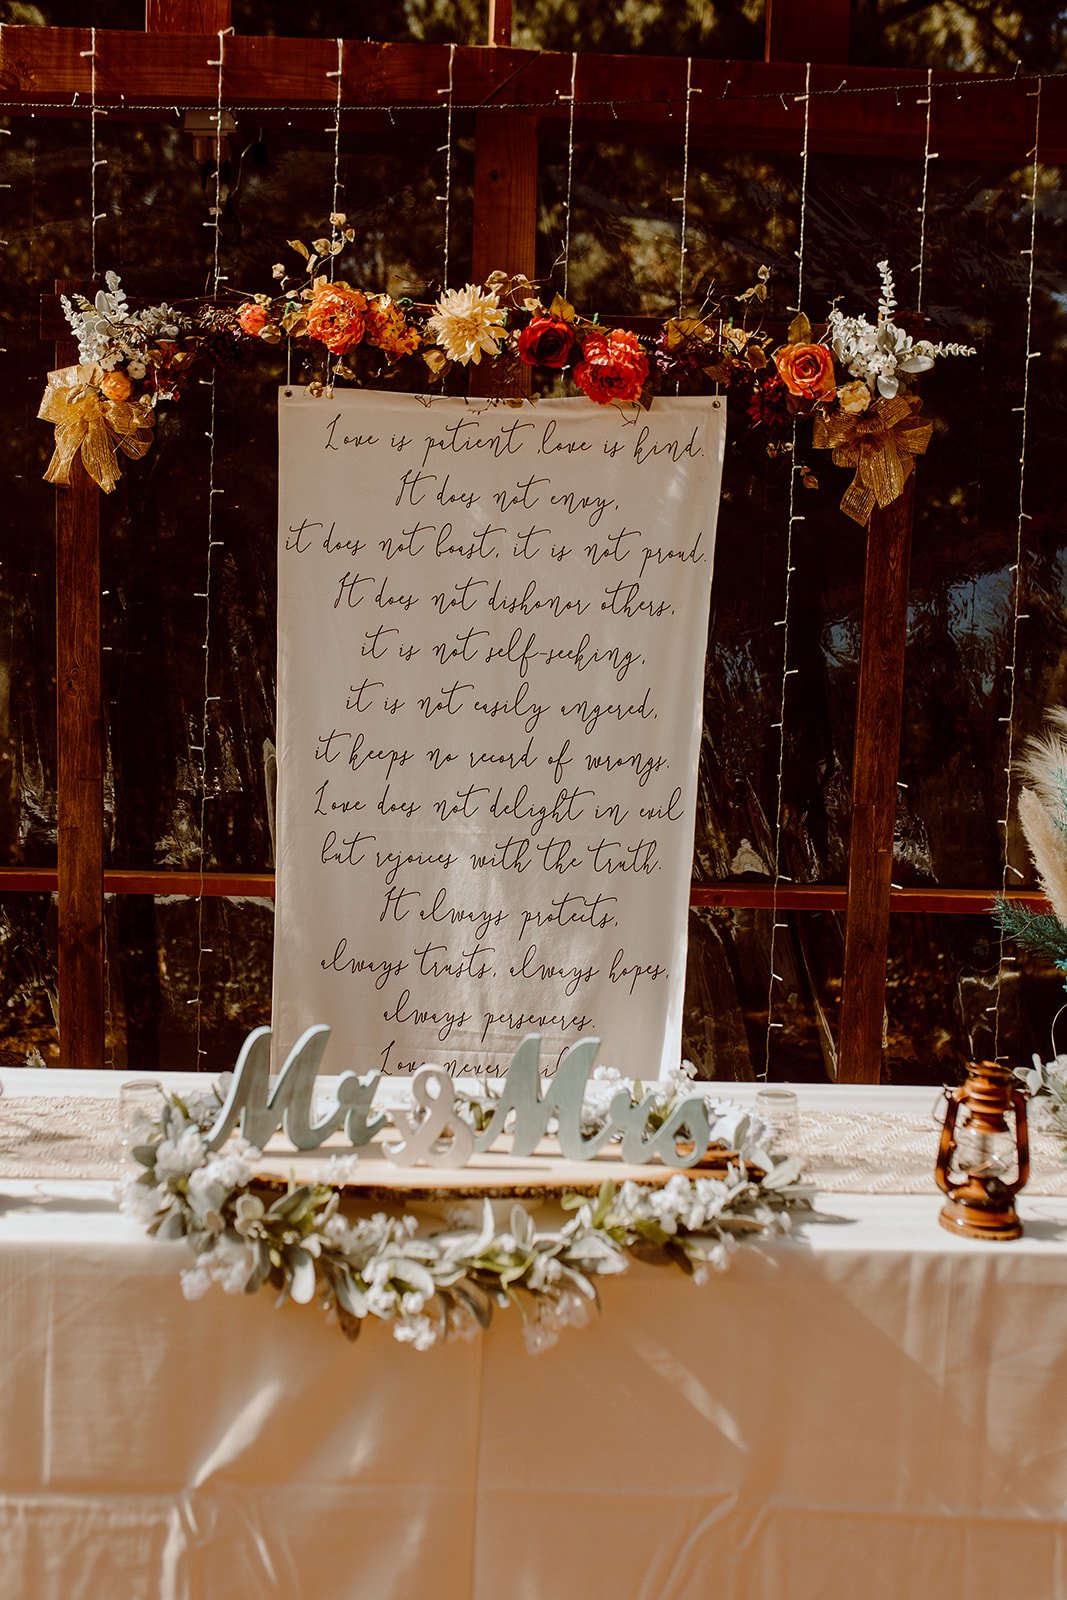 Love is patient ,love is kind.
It does not envy,
it does not boast, it is not proud.
It does not dishonor others,
it is not self-seeking,
it is not easily angered,
it keeps no record of wrongs.
Love does not delight in evil
but rejoices with the truth.
It always protects,
always trusts, always hopes,
always perseveres.
Love never
Mr & Mrs